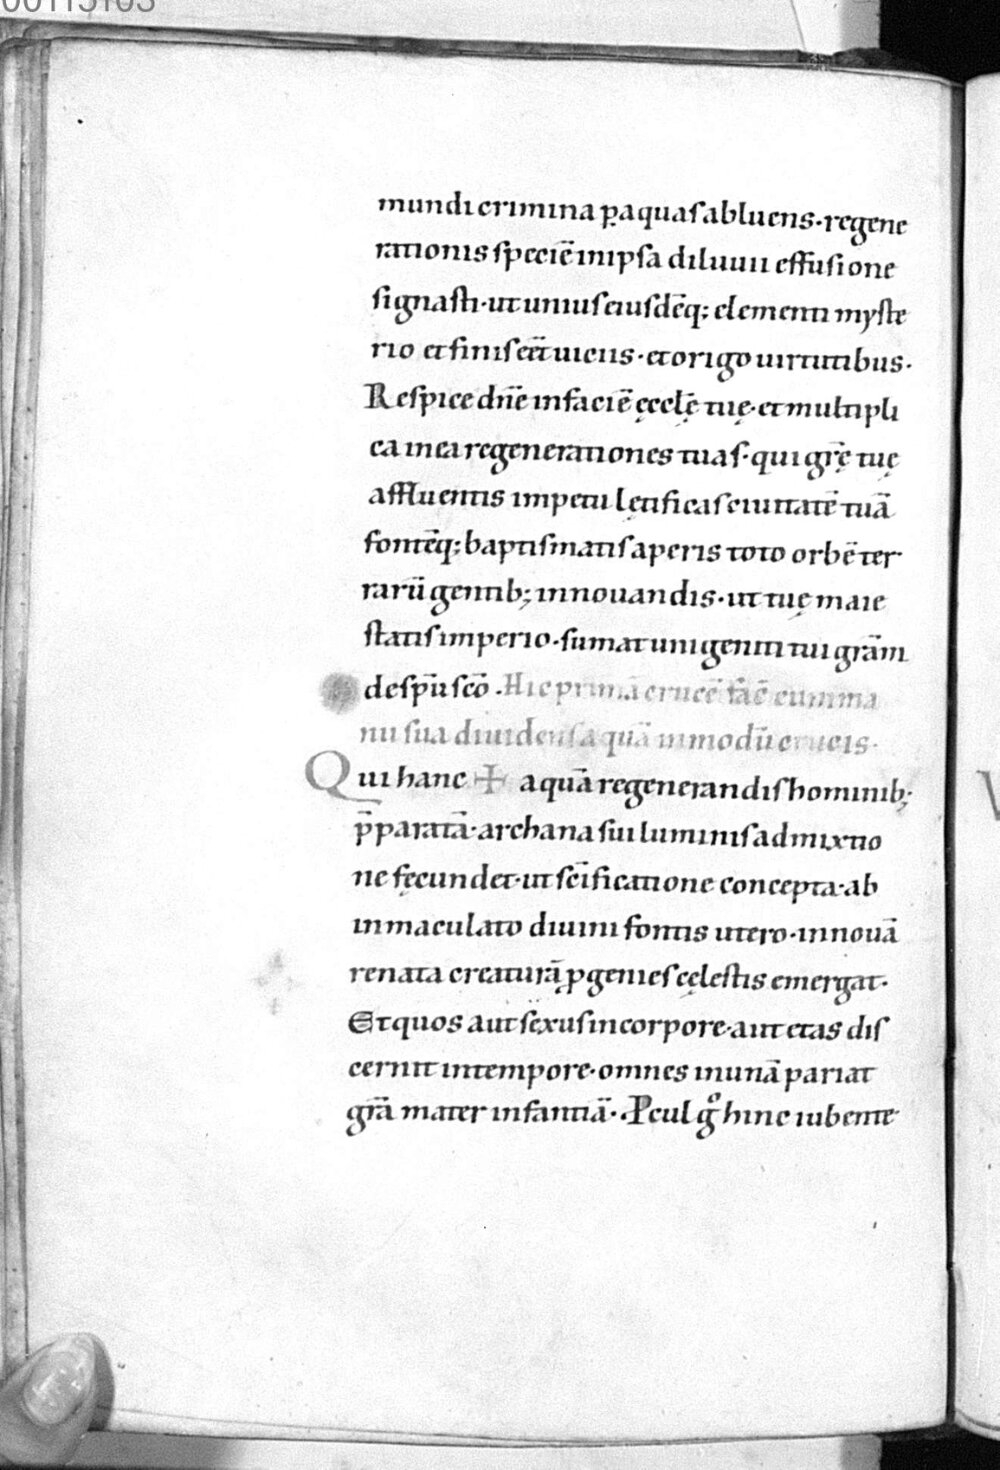 00115103
mundi crimina p̲ aquas abluens · regene
rationis speciē inipsa diluuii effusione
signasti · ut unius eiusdēq; elementi myste
rio et finis eēt uiciis · et origo uirtutibus ·
Respice dn̄e in faciē ęcclę̄ tuę · et multipli
ca in ea regenerationes tuas · qui gr̄ę tuę
affluentis impetu lętificas ciuitatē tuā
fontēq; baptismatis aperis toto orbē ter
rarū gentib; innouandis · ut tuę maie
statis imperio · sumat unigeniti tui gr̄am
de sp̄u sc̄o . Hic primā crucē fac̄ cum ma
nu sua diuidens aquā in modū crucis ·
Qui hanc ✠ aquā regenerandis hominib;
p̄paratā · archana sui luminis admixtio
ne fęcundet · ut sc̄ificatione concepta · ab
inmaculato diuini fontis utero · in nouā
renata creaturā ꝓgenies cęlestis emergat ·
Et quos aut sexus in corpore · aut etas dis
cernit in tempore · omnes in unā pariat
gr̄a mater infantiā · Pcul gͦ hinc iubente